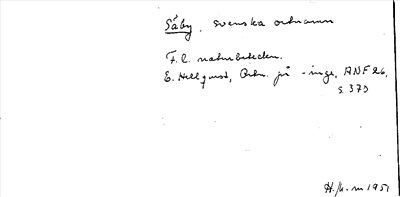 Säby, svenska ortnamn
F.l. naturbeteckn.
E. Hellquist, Ortn. på -inge, ANF 26,
s. 370
H. m 1951